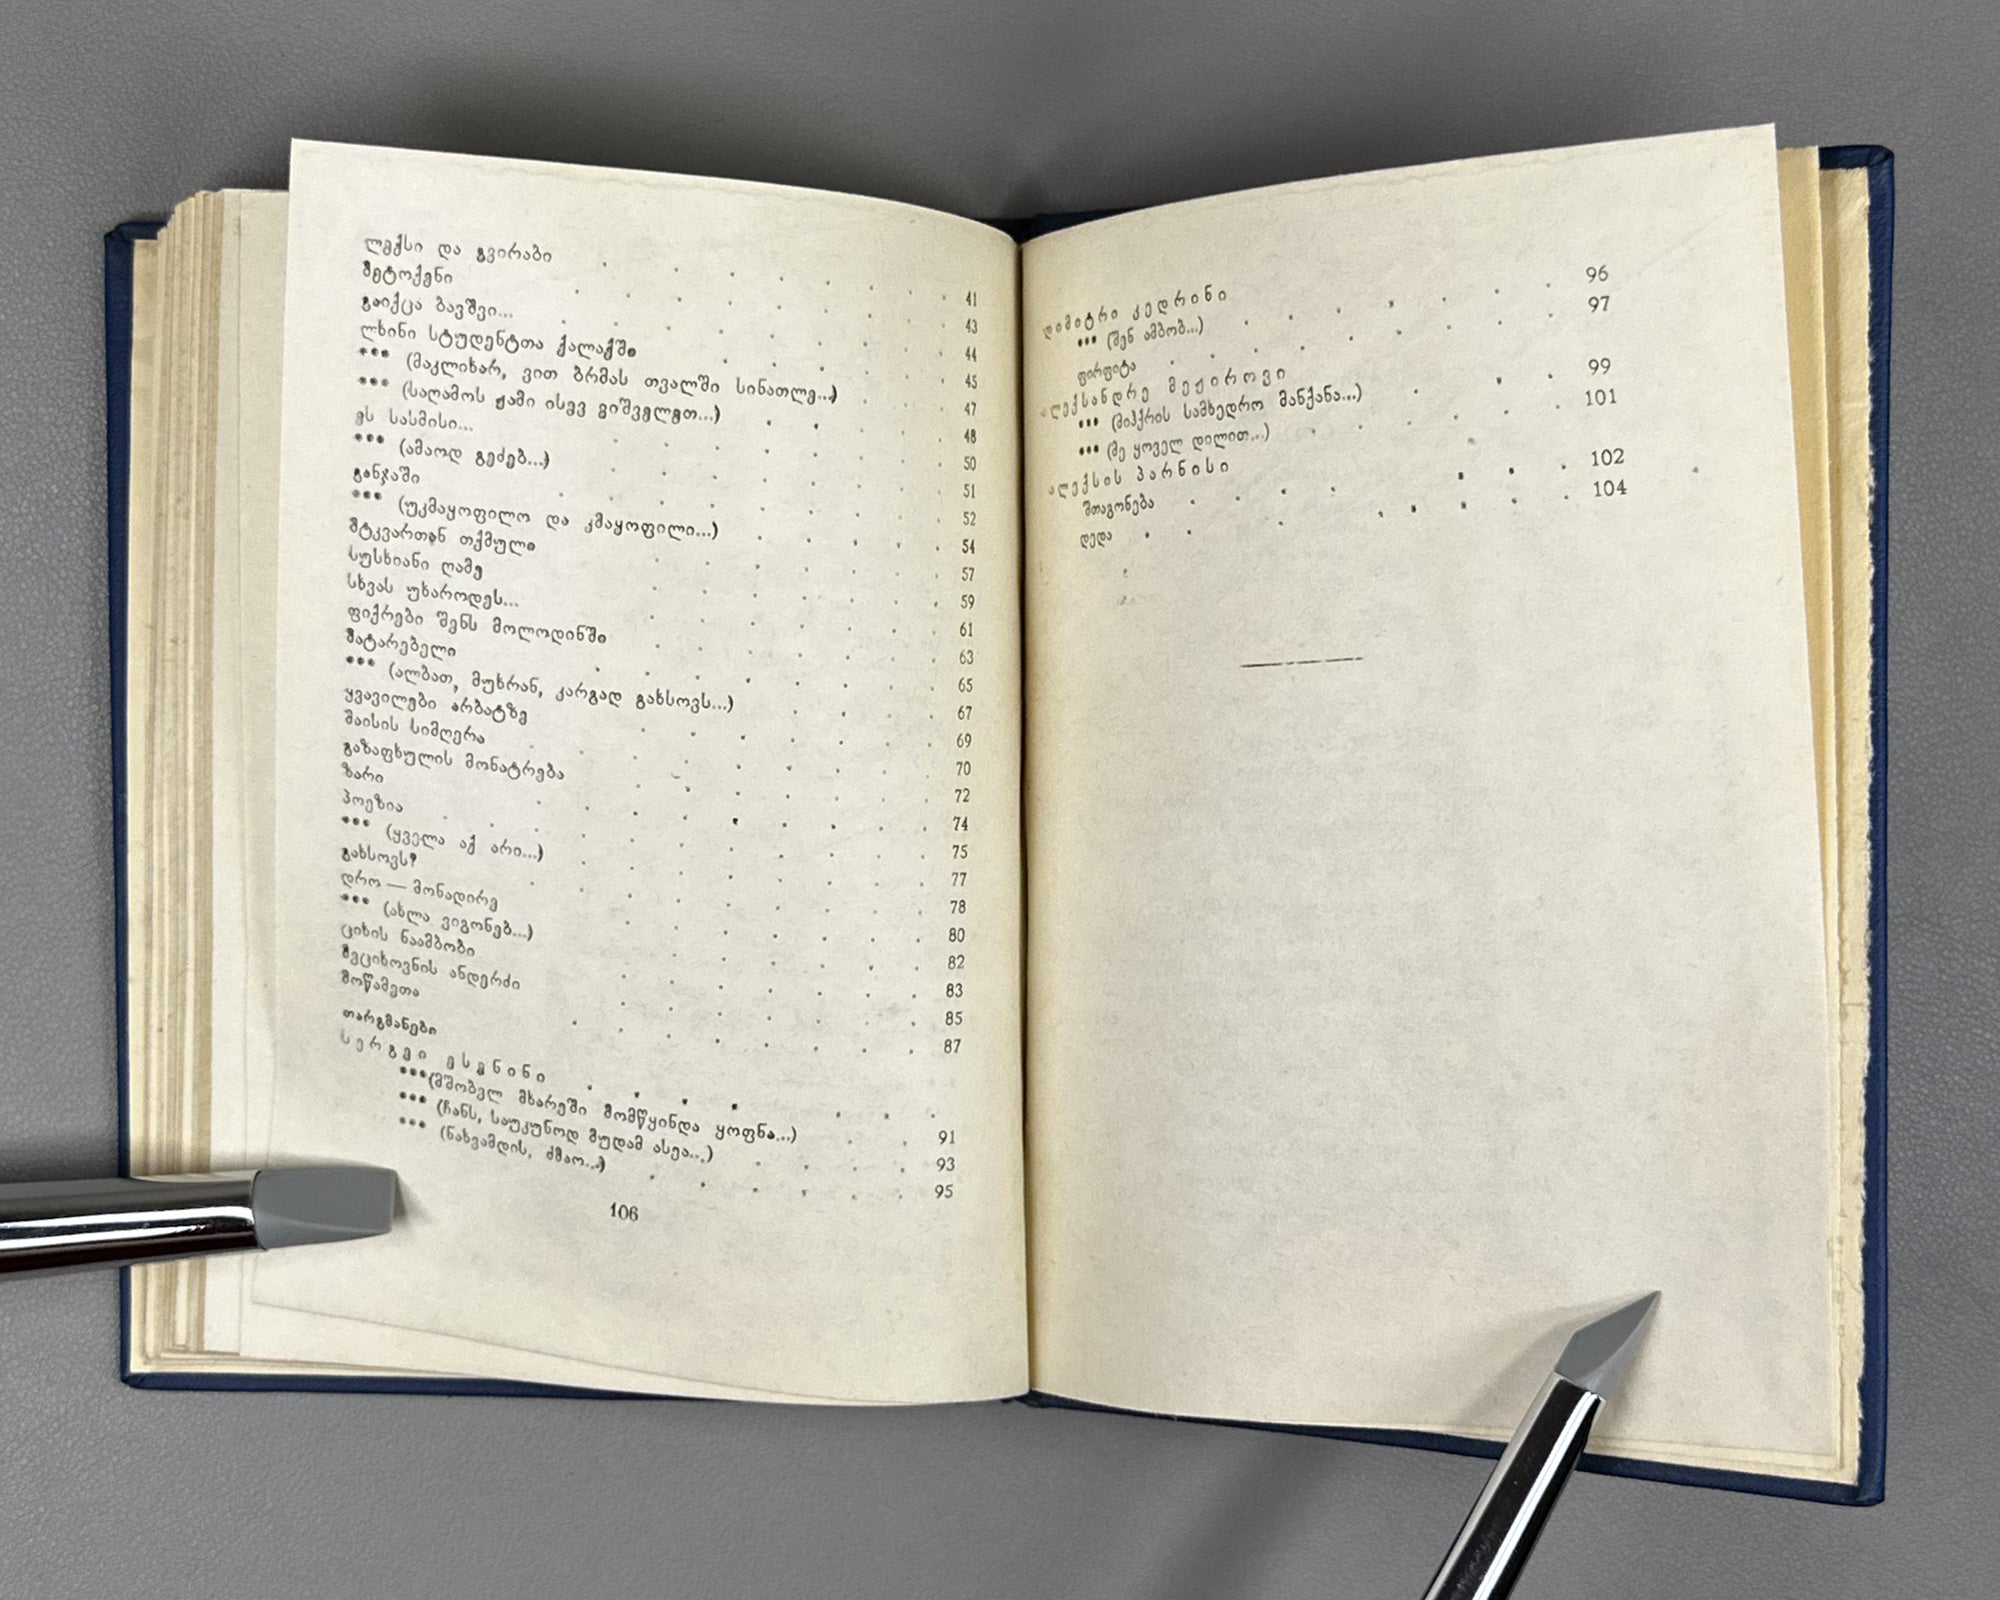 ლექსი და გვირაბი . . . . . . . 41
მეტოქენი . . . . . . . 43
გაიქცა ბავშვი... . . . . . . . 44
ლხინი სტუდენტთა ქალაქში . . . . . 45
*** (მაკლიხარ, ვით ბრმას თვალში სინათლე...) . . 47
*** (საღამოს ჟამი ისევ ვიშველეთ...) . . . . 48
ეს სასმისი... . . . . . . . 50
*** (ამაოდ გეძებ...) . . . . . . . 51
განჯაში . . . . . . . 52
*** (უკმაყოფილო და კმაყოფილი...) . . . . 54
მტკვართან თქმული . . . . . . 57
სუსხიანი ღამე . . . . . . 59
სხვას უხაროდეს... . . . . . . 61
ფიქრები შენს მოლოდინში . . . . . . 63
მატარებელი . . . . . . . 65
*** (ალბათ, მუხრან, კარგად გახსოვს...) . . . 67
ყვავილები არბატზე . . . . . . 69
მაისის სიმღერა . . . . . . . 70
გაზაფხულის მონატრება . . . . . . 72
ზარი . . . . . . . 74
პოეზია . . . . . . . 75
*** (ყველა აქ არი...) . . . . . . . 77
გახსოვს? . . . . . . . 78
დრო — მონადირე . . . . . . 80
*** (ახლა ვიგონებ...) . . . . . . 82
ციხის ნაამბობი . . . . . . 83
მეციხოვნის ანდერძი . . . . . . 85
მოწამეთა . . . . . . . 87
თარგმანები
სერგეი ესენინი . . . . . . .
***(მშობელ მხარეში მომწყინდა ყოფნა...) . . 91
*** (ჩანს, საუკუნოდ მუდამ ასეა...) . . . . 93
*** (ნახვამდის, ძმაო...) . . . . . . 95
106
დიმიტრი კედრინი
*** (შენ ამბობ...) . . . . . . . 96
ფირფიტა . . . . . . . 97
ალექსანდრე მეჟიროვი
*** (მიჰქრის სამხედრო მანქანა...) . . . 99
*** (მე ყოველ დილით...) . . . . . 101
ალექსის პარნისი
შთაგონება . . . . . . . 102
დედა . . . . . . . 104